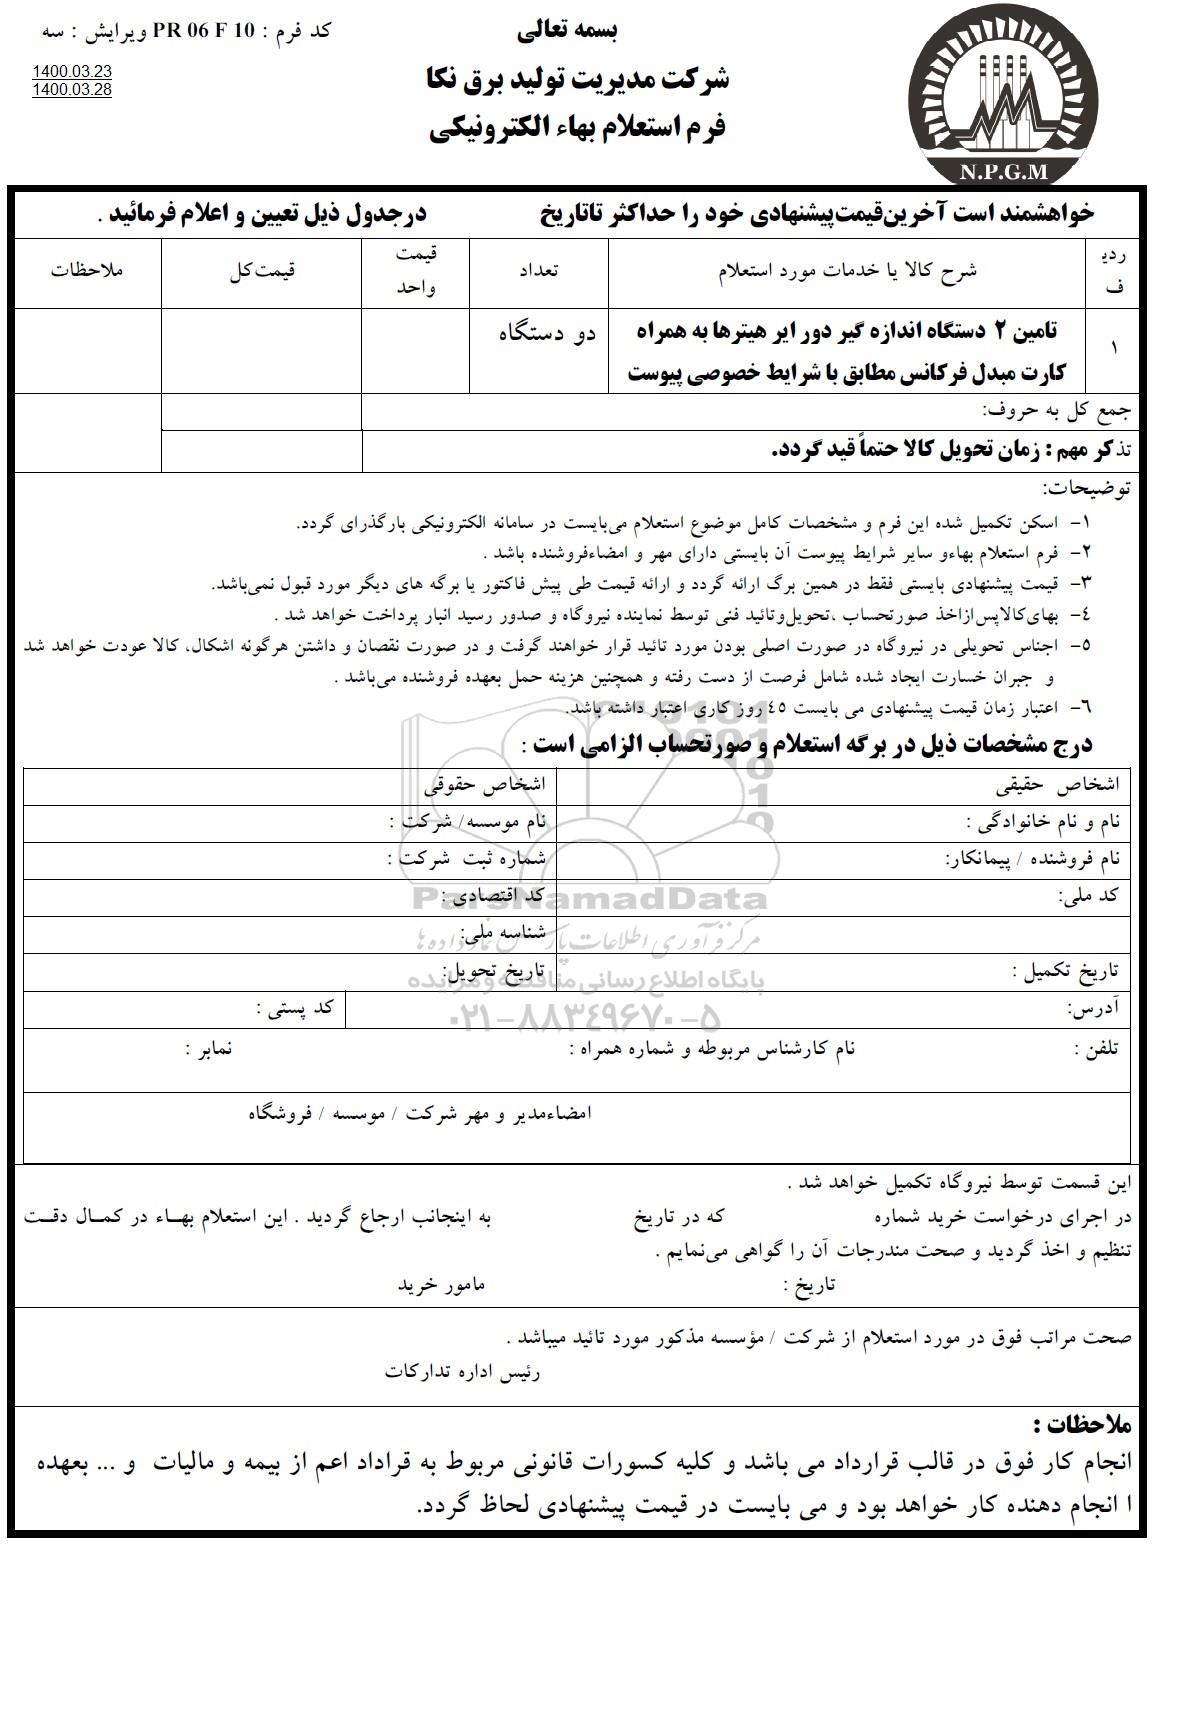 بسمه تعالی
کد فرم : PR 06 F 10 ویرایش : سه
1400.03.23
1400.03.28
شرکت مدیریت تولید برق نکا
فرم استعلام بهاء الکترونیکی
N.P.G.M
خواهشمند است آخرین‌قیمت‌پیشنهادی خود را حداکثر تاتاریخ درجدول ذیل تعیین و اعلام فرمائید .
ردیف شرح کالا یا خدمات مورد استعلام تعداد قیمت واحد قیمت‌کل ملاحظات
۱ تامین ۲ دستگاه اندازه گیر دور ایر هیترها به همراه دو دستگاه
کارت مبدل فرکانس مطابق با شرایط خصوصی پیوست
جمع کل به حروف:
تذکر مهم : زمان تحویل کالا حتماً قید گردد.
توضیحات:
۱- اسکن تکمیل شده این فرم و مشخصات کامل موضوع استعلام می‌بایست در سامانه الکترونیکی بارگذرای گردد.
۲- فرم استعلام بهاءو سایر شرایط پیوست آن بایستی دارای مهر و امضاءفروشنده باشد .
۳- قیمت پیشنهادی بایستی فقط در همین برگ ارائه گردد و ارائه قیمت طی پیش فاکتور یا برگه های دیگر مورد قبول نمی‌باشد.
۴- بهای‌کالاپس‌ازاخذ صورتحساب ،تحویل‌وتائید فنی توسط نماینده نیروگاه و صدور رسید انبار پرداخت خواهد شد .
۵- اجناس تحویلی در نیروگاه در صورت اصلی بودن مورد تائید قرار خواهند گرفت و در صورت نقصان و داشتن هرگونه اشکال، کالا عودت خواهد شد
و جبران خسارت ایجاد شده شامل فرصت از دست رفته و همچنین هزینه حمل بعهده فروشنده می‌باشد .
۶- اعتبار زمان قیمت پیشنهادی می بایست ۴۵ روز کاری اعتبار داشته باشد.
درج مشخصات ذیل در برگه استعلام و صورتحساب الزامی است :
اشخاص حقیقی اشخاص حقوقی
نام و نام خانوادگی : نام موسسه/ شرکت :
نام فروشنده / پیمانکار: شماره ثبت شرکت :
کد ملی: کد اقتصادی :
شناسه ملی:
تاریخ تکمیل : تاریخ تحویل:
آدرس: کد پستی :
تلفن : نام کارشناس مربوطه و شماره همراه : نمابر :
امضاءمدیر و مهر شرکت / موسسه / فروشگاه
ParsNamadData
مرکز فرآوری اطلاعات پارس نماد داده ها
پایگاه اطلاع رسانی مناقصه و مزایده
۰۲۱-۸۸۳۴۹۶۷۰-۵
این قسمت توسط نیروگاه تکمیل خواهد شد .
در اجرای درخواست خرید شماره که در تاریخ به اینجانب ارجاع گردید . این استعلام بهـاء در کمـال دقـت
تنظیم و اخذ گردید و صحت مندرجات آن را گواهی می‌نمایم .
تاریخ : مامور خرید
صحت مراتب فوق در مورد استعلام از شرکت / مؤسسه مذکور مورد تائید میباشد .
رئیس اداره تدارکات
ملاحظات :
انجام کار فوق در قالب قرارداد می باشد و کلیه کسورات قانونی مربوط به قراداد اعم از بیمه و مالیات و ... بعهده
ا انجام دهنده کار خواهد بود و می بایست در قیمت پیشنهادی لحاظ گردد.